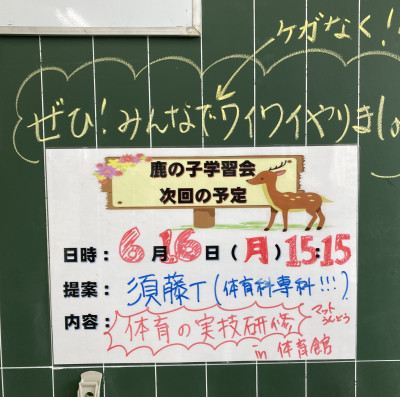 ケガなく!
ぜひ!みんなでワイワイやりましょ
鹿の子学習会
次回の予定
日時:6月16日(月)15:15
提案:須藤T(体育科専科!!!)
内容:体育の実技研修
マットうんどう
in 体育館